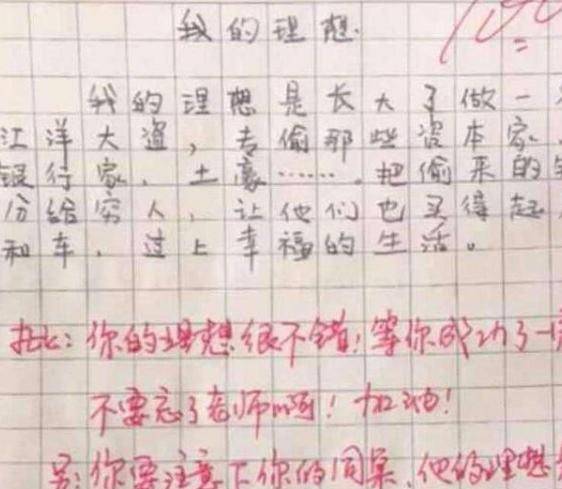 我的理想
100
我的理想是长大了做一
江洋大盗，专偷那些资本家、
银行家、土豪……。把偷来的
分给穷人，让他们也买得起
和车，过上幸福的生活。
批：你的理想很不错！等你成功了一
不要忘了老师啊！加油！
另：你要注意下你的同桌，他的理想